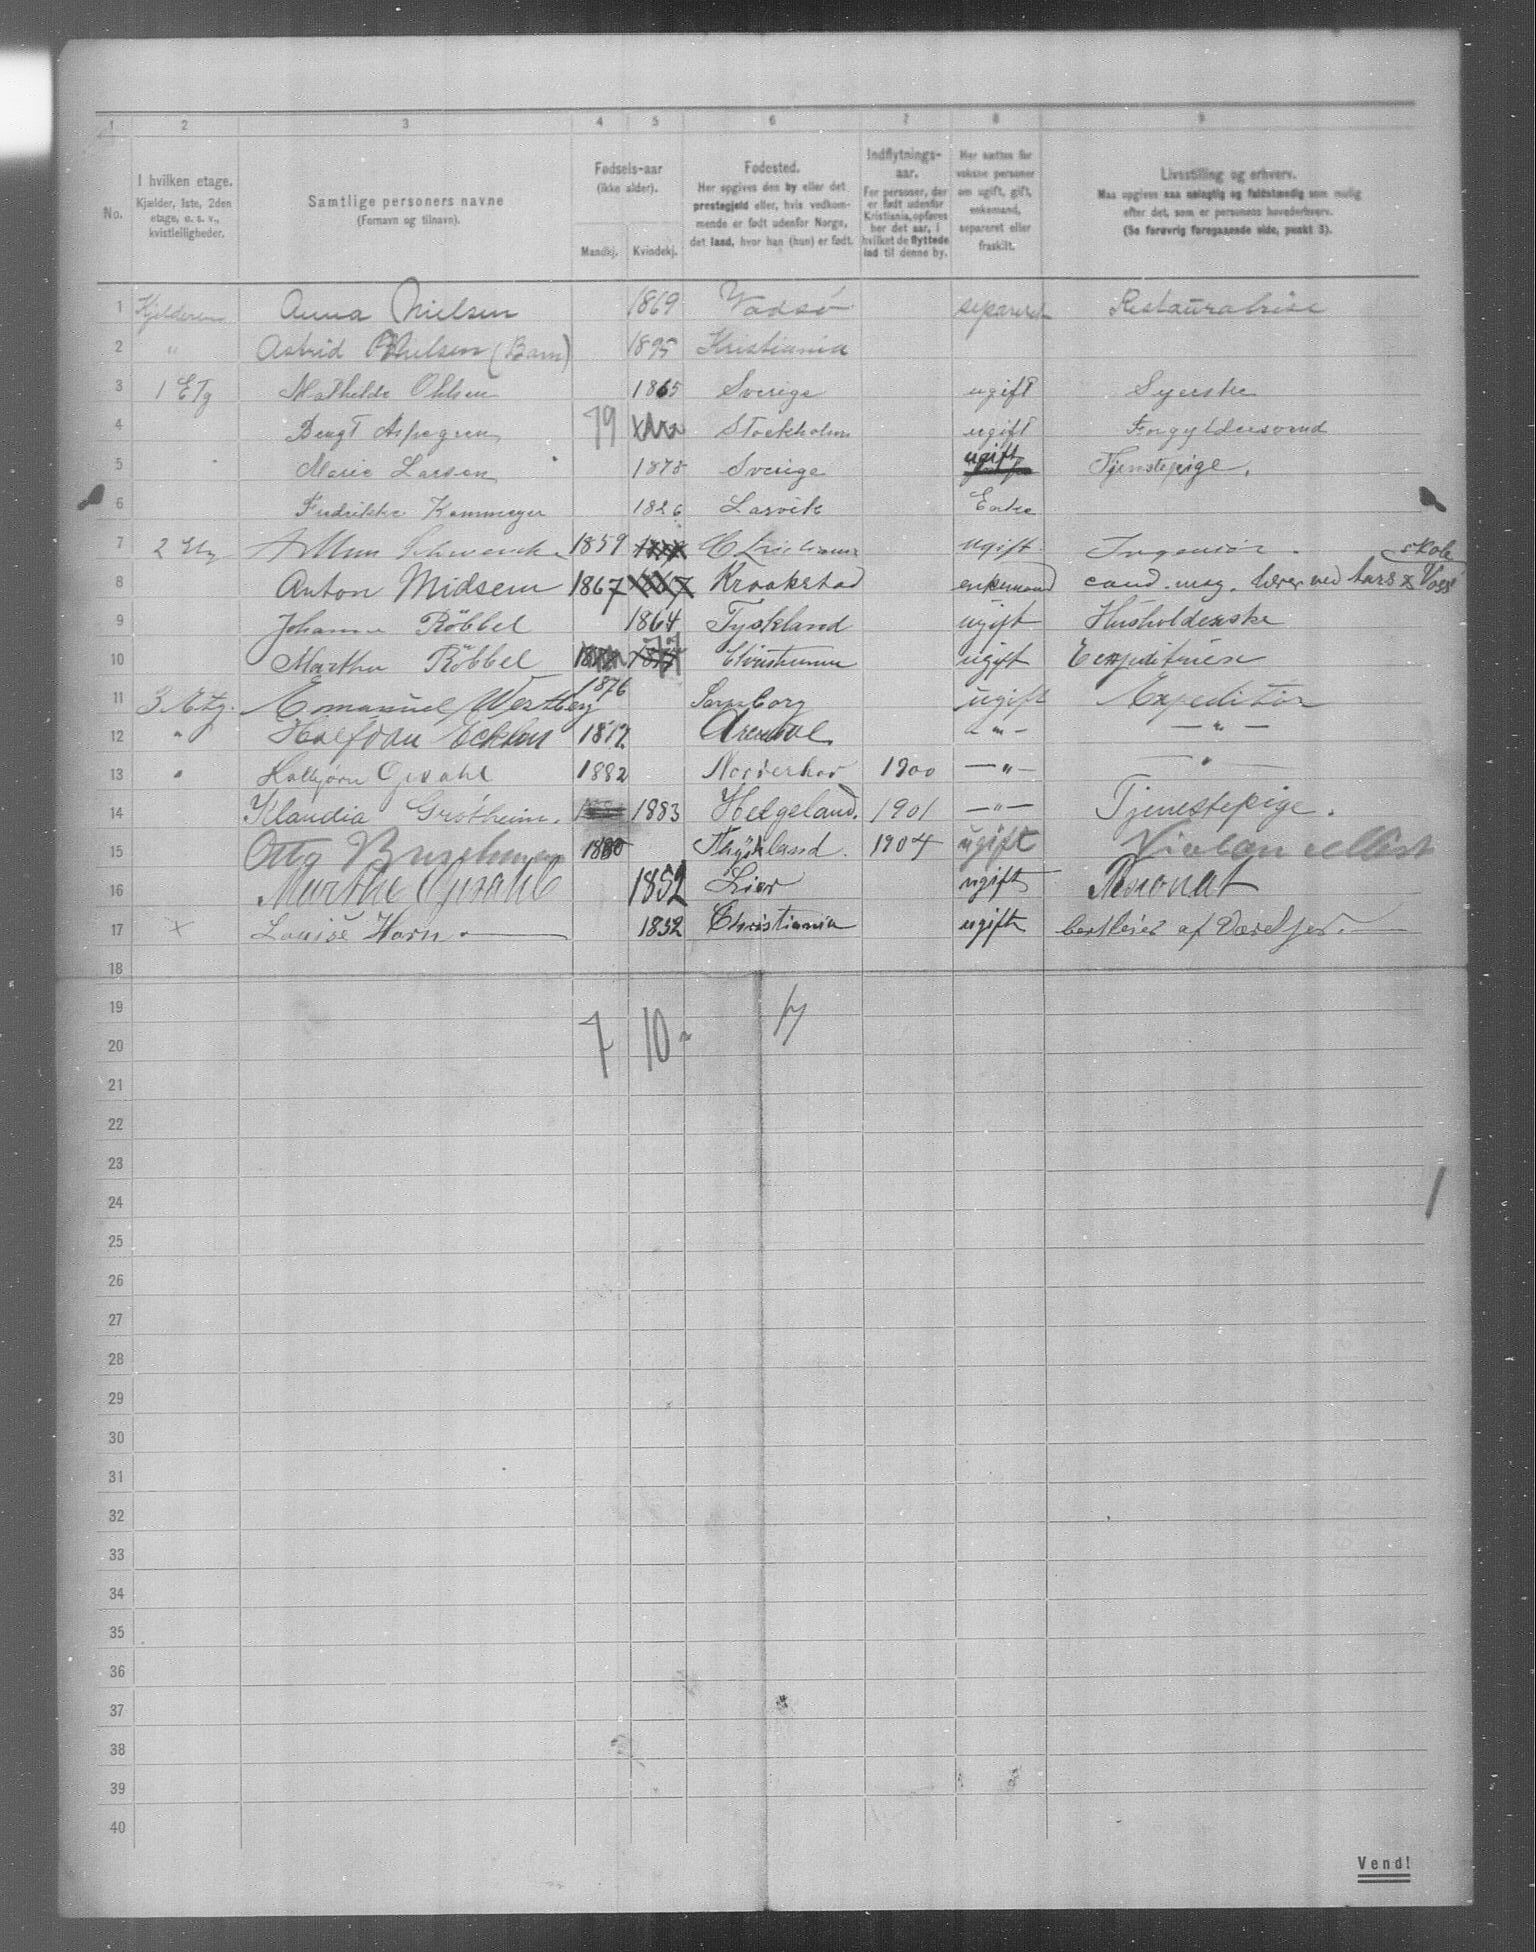 1 2 3 4 5 6 7 8 9
No.
I hvilken etage.
Kjælder, 1ste, 2den
etage, o. s. v.,
kvistleiligheder.
Samtlige personers navne
(Fornavn og tilnavn).
Fødsels-aar
(ikke alder).
Mandkj. Kvindekj.
Fødested.
Her opgives den by eller det
prestegjeld eller, hvis vedkom-
mende er født udenfor Norge,
det land, hvor han (hun) er født.
Indflytnings-
aar.
For personer, der
er født udenfor
Kristiania, opføres
her det aar, i
hvilket de flyttede
ind til denne by.
Her sættes for
voksne personer
om ugift, gift,
enkemand,
separeret eller
fraskilt.
Livsstilling og erhverv.
Maa opgives saa nøiagtig og fuldstændig som mulig
efter det, som er personens hovederhverv.
(Se forøvrig foregaaende side, punkt 3).
1 Kjelderen Anna Nielsen 1869 Vadsø separeret Restauratrise
2 " Astrid Nielsen (Barn) 1895 Kristiania
3 1 Etg Mathilde Ohlsen 1865 Sverige ugift Syerske
4 Bengt Aspegren 79 Stockholm ugift Forgyldersvend
5 Marie Larsen 1878 Sverige ugift Tjenestepige.
6 Fredrikke Kammeyer 1826 Larvik Enke
7 2 Etg 1859 Christiania ugift Ingeniør.
skole
8 Anton Midsem 1867 Kraakstad enkemand cand. mag. lærer ved Aars & Voss
9 Johanne Röbbel 1864 Tyskland ugift Husholderske
10 Martha Röbbel 77 Christiania ugift Expeditrise
11 3 Etg. Emanuel Westbey 1876 Sarpsborg ugift Expeditør
12 " Halfdan 1872 Arendal — " — — " —
13 " Halbjørn Gjesdahl 1882 Norderhov 1900 — " — — " —
14 Klaudia Grøtheim. 1883 Helgeland. 1901 — " — Tjenestepige.
15 Otto 1880 Thyskland. 1904 ugift
16 Marthe 1852 Lier ugift Pensionat
17 x Louise Horn. 1852 Christiania ugift bortleier af Værelser.
18
19
7 10 17
20
21
22
23
24
25
26
27
28
29
30
31
32
33
34
35
36
37
38
39
40
Vend!